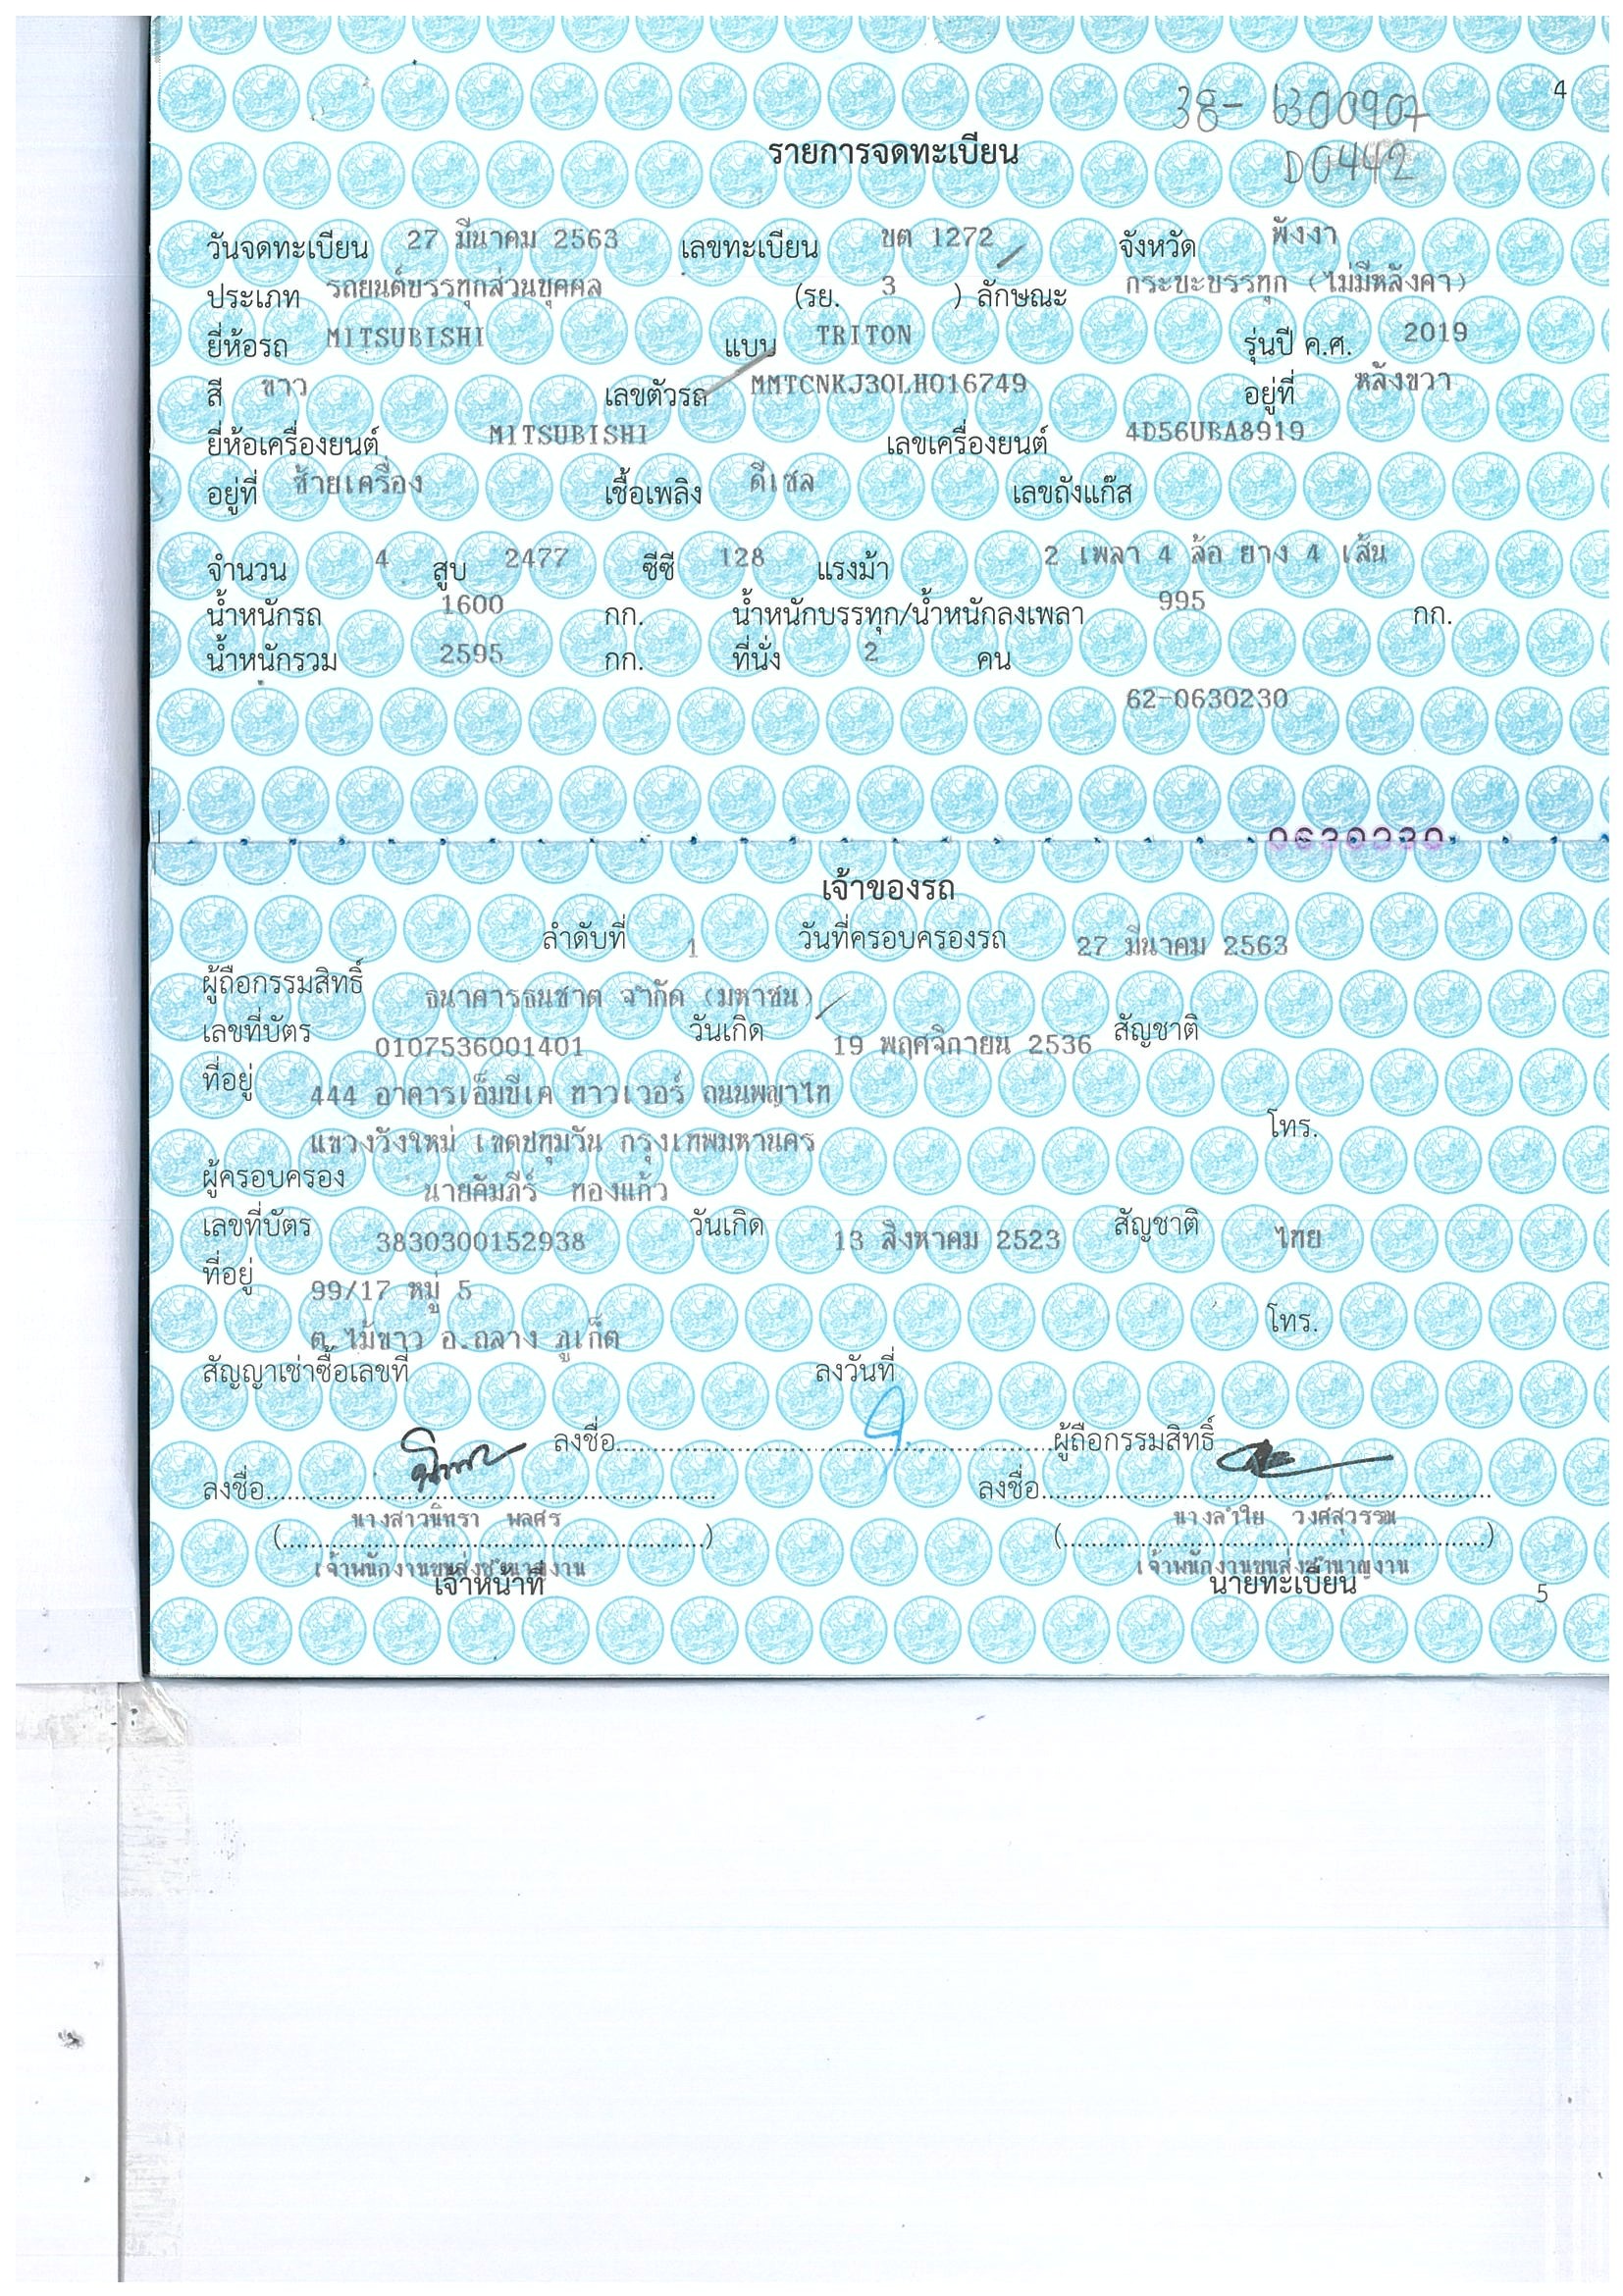 4
38- 6300907
D0442
รายการจดทะเบียน
วันจดทะเบียน 27 มีนาคม 2563 เลขทะเบียน ขต 1272 จังหวัด พังงา
ประเภท รถยนต์บรรทุกส่วนบุคคล (รย. 3 ) ลักษณะ กระบะบรรทุก (ไม่มีหลังคา)
ยี่ห้อรถ MITSUBISHI แบบ TRITON รุ่นปี ค.ศ. 2019
สี ขาว เลขตัวรถ MMTCNKJ30LH016749 อยู่ที่ หลังขวา
ยี่ห้อเครื่องยนต์ MITSUBISHI เลขเครื่องยนต์ 4D56UBA8919
อยู่ที่ ซ้ายเครื่อง เชื้อเพลิง ดีเซล เลขถังแก๊ส
จำนวน 4 สูบ 2477 ซีซี 128 แรงม้า 2 เพลา 4 ล้อ ยาง 4 เส้น
น้ำหนักรถ 1600 กก. น้ำหนักบรรทุก/น้ำหนักลงเพลา 995 กก.
น้ำหนักรวม 2595 กก. ที่นั่ง 2 คน
62-0630230
0630230
เจ้าของรถ
ลำดับที่ 1 วันที่ครอบครองรถ 27 มีนาคม 2563
ผู้ถือกรรมสิทธิ์ ธนาคารธนชาต จำกัด (มหาชน)
เลขที่บัตร 0107536001401 วันเกิด 19 พฤศจิกายน 2536 สัญชาติ
ที่อยู่ 444 อาคารเอ็มบีเค ทาวเวอร์ ถนนพญาไท
แขวงวังใหม่ เขตปทุมวัน กรุงเทพมหานคร โทร.
ผู้ครอบครอง นายคัมภีร์ ทองแก้ว
เลขที่บัตร 3830300152938 วันเกิด 13 สิงหาคม 2523 สัญชาติ ไทย
ที่อยู่ 99/17 หมู่ 5
ต.ไม้ขาว อ.ถลาง ภูเก็ต โทร.
สัญญาเช่าซื้อเลขที่ ลงวันที่
ลงชื่อ ผู้ถือกรรมสิทธิ์
ลงชื่อ ลงชื่อ
(นางสาวนิทรา พลศร) (นางลำใย วงศ์สุวรรณ)
เจ้าพนักงานขนส่งชำนาญงาน เจ้าพนักงานขนส่งชำนาญงาน
เจ้าหน้าที่ นายทะเบียน
5